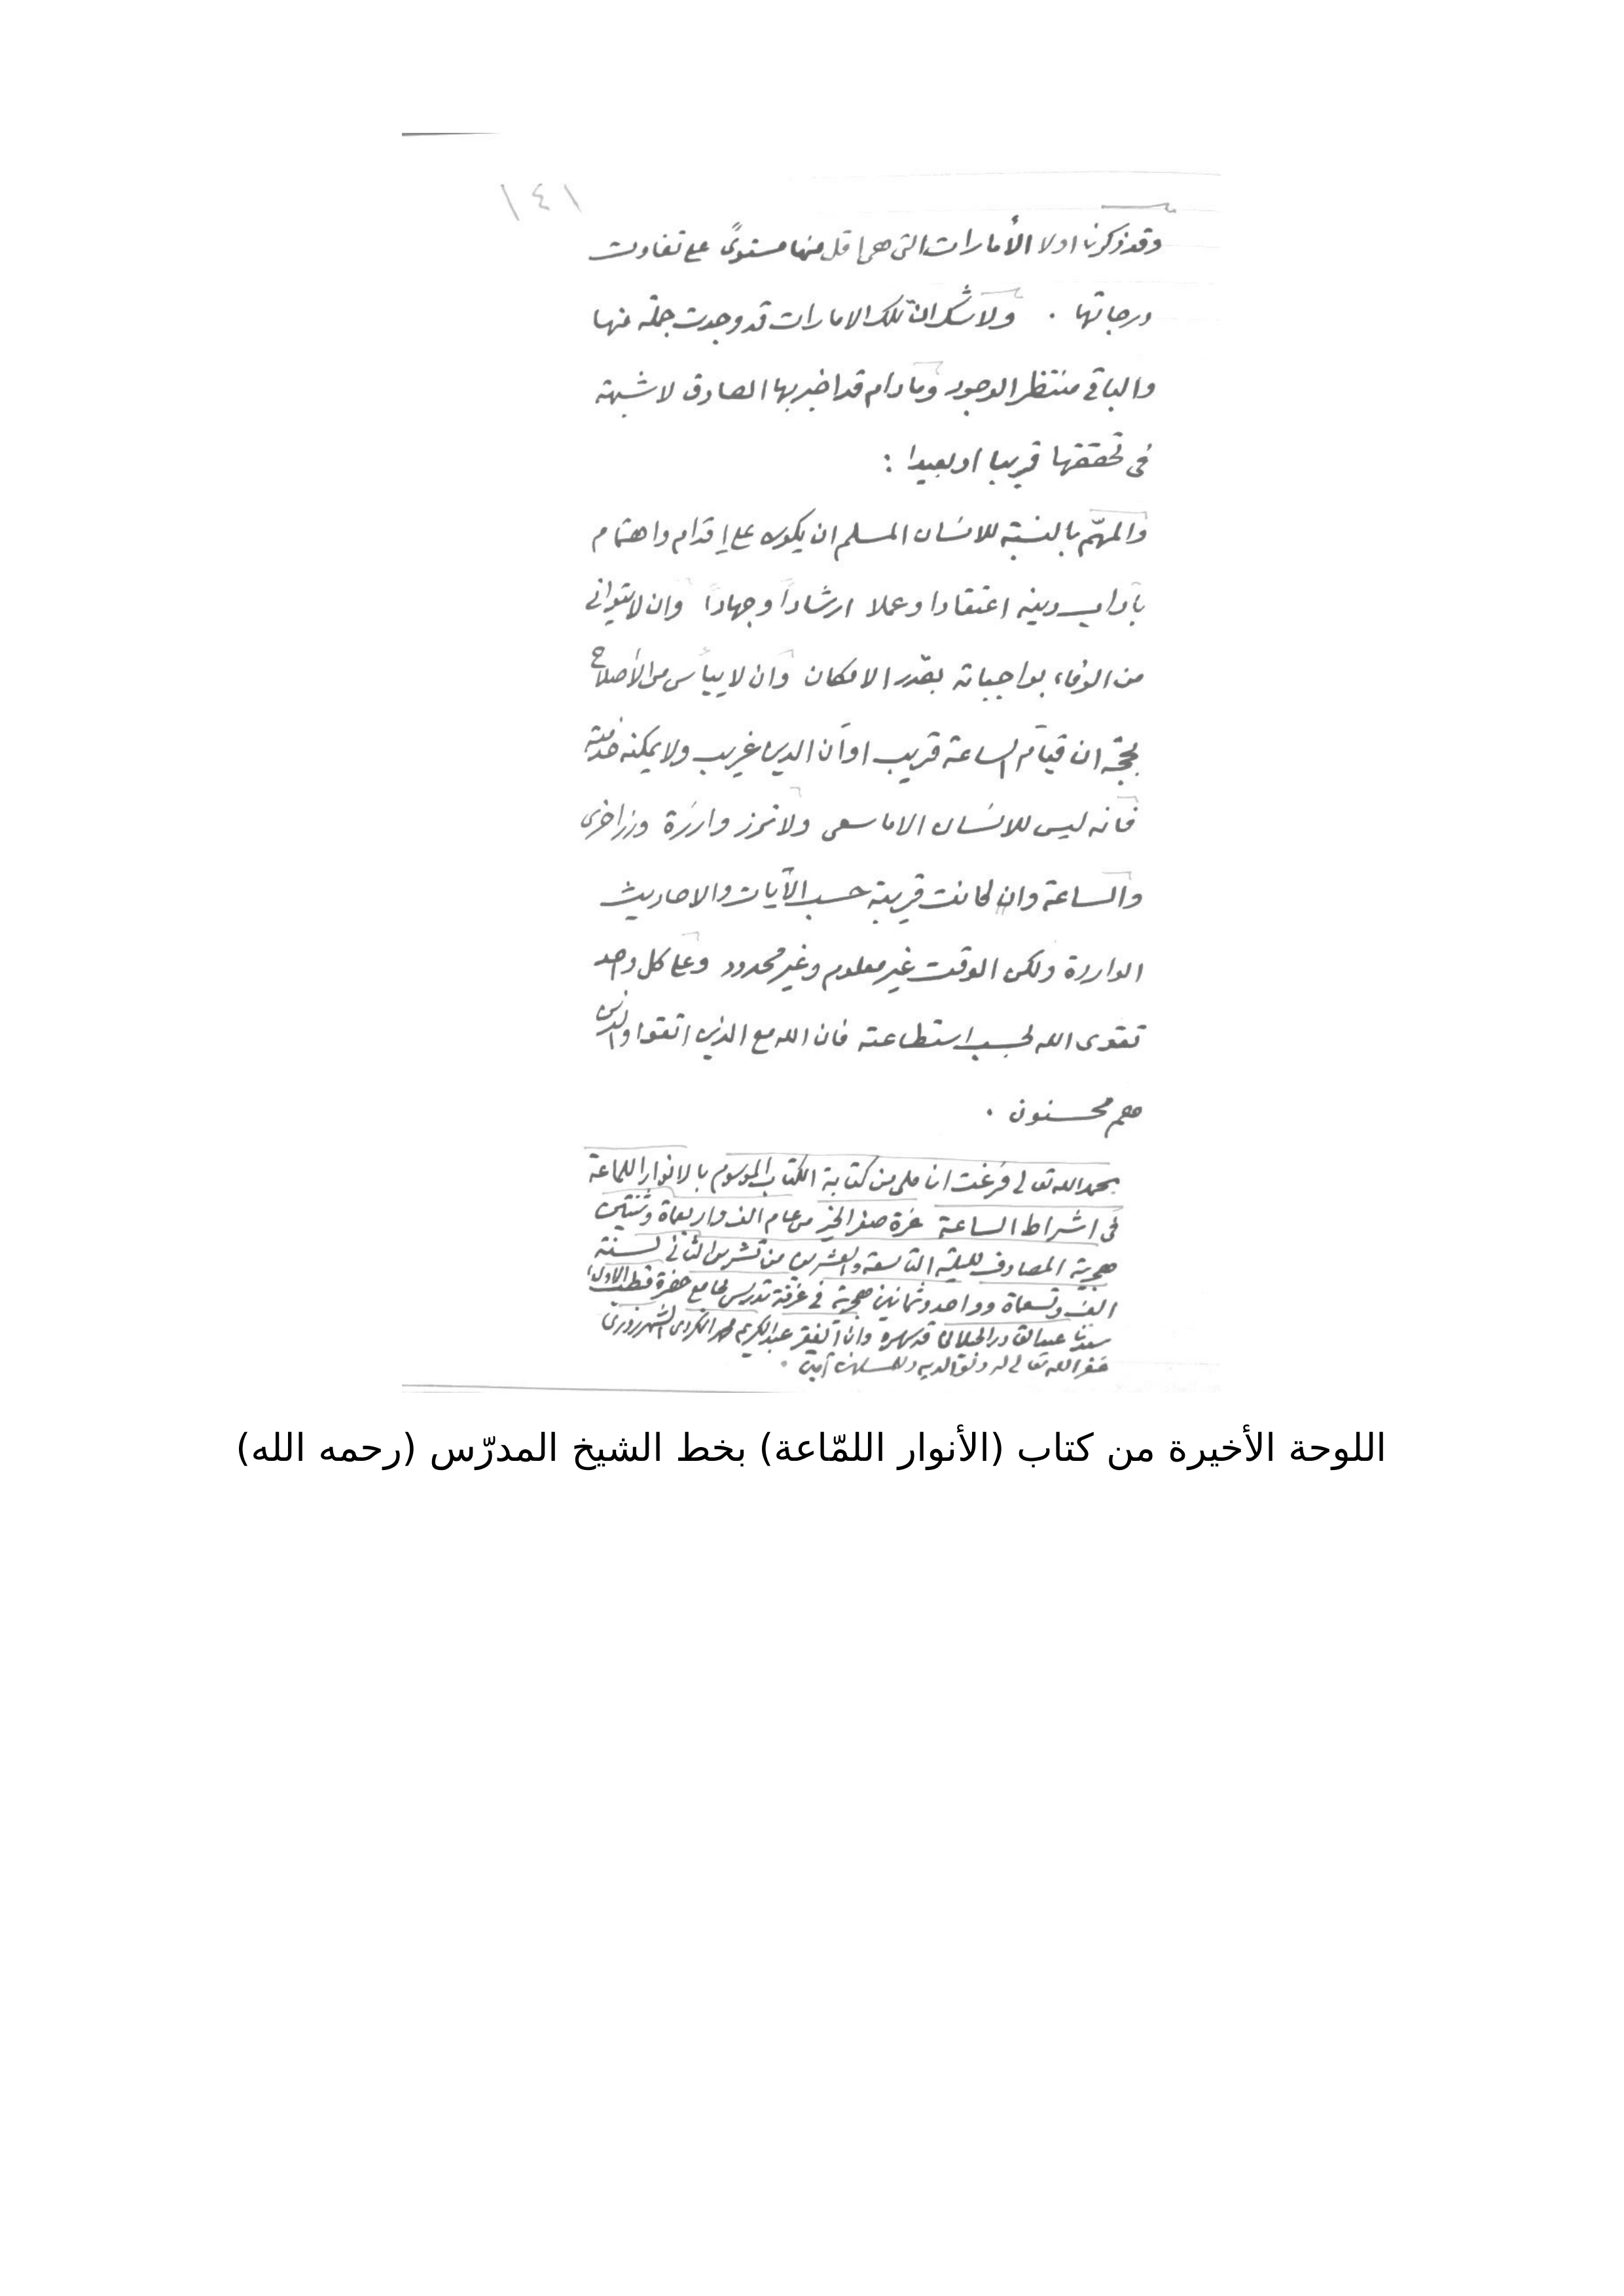 ١٤١
وقد ذكرنا اولا الأمارات التى هى اقل منها مستوىً على تفاوت
درجاتها . ولاشك انّ تلك الامارات قد وجدت جملة منها
والباقي منتظر الوجود ومادام قد اخبر بها الصادق لا شبهة
فى تحققها قريبا او بعيدا :
والمهمّ بالنسبة للانسان المسلم ان يكون على إقدام واهتمام
بآداب دينه اعتقادا وعملا ارشاداً وجهاداً وان لا يتوانى
من الوفاء بواجباته بقدر الامكان وان لا ييأس من الأصلاح
بحجّة ان قيام الساعة قريب او أن الدين غريب ولا يمكنه خدمته
فانه ليس للانسان الا ما سعى ولا تزر وازرة وزر اخرى
والساعة وان كانت قريبة حسب الآيات والاحاديث
الواردة ولكن الوقت غير معلوم وغير محدود وعلى كل واحد
تقوى الله بحسب استطاعته فان الله مع الذين اتقوا والذين
هم محسنون .
بحمد الله تعالى فرغت اناملى من كتابة الكتاب الموسوم بالانوار اللماعة
فى اشراط الساعة غرة صفر الخير من عام الف واربعماة وثنتين
هجرية المصادف لليلة التاسعة والعشرين من تشرين الثانى لسنة
الف وتسعماة وواحد وثمانين هجرية في غرفة تدريس لجامع حضرة قطب الاولياء
سيدنا عبدالقادر الجيلانى قدس سره وانا الفقير عبدالكريم محمد الكردى الشهرزورى
غفر الله تعالى له ولوالديه وللمسلمين آمين .
اللوحة الأخيرة من كتاب (الأنوار اللمّاعة) بخط الشيخ المدرّس (رحمه الله)